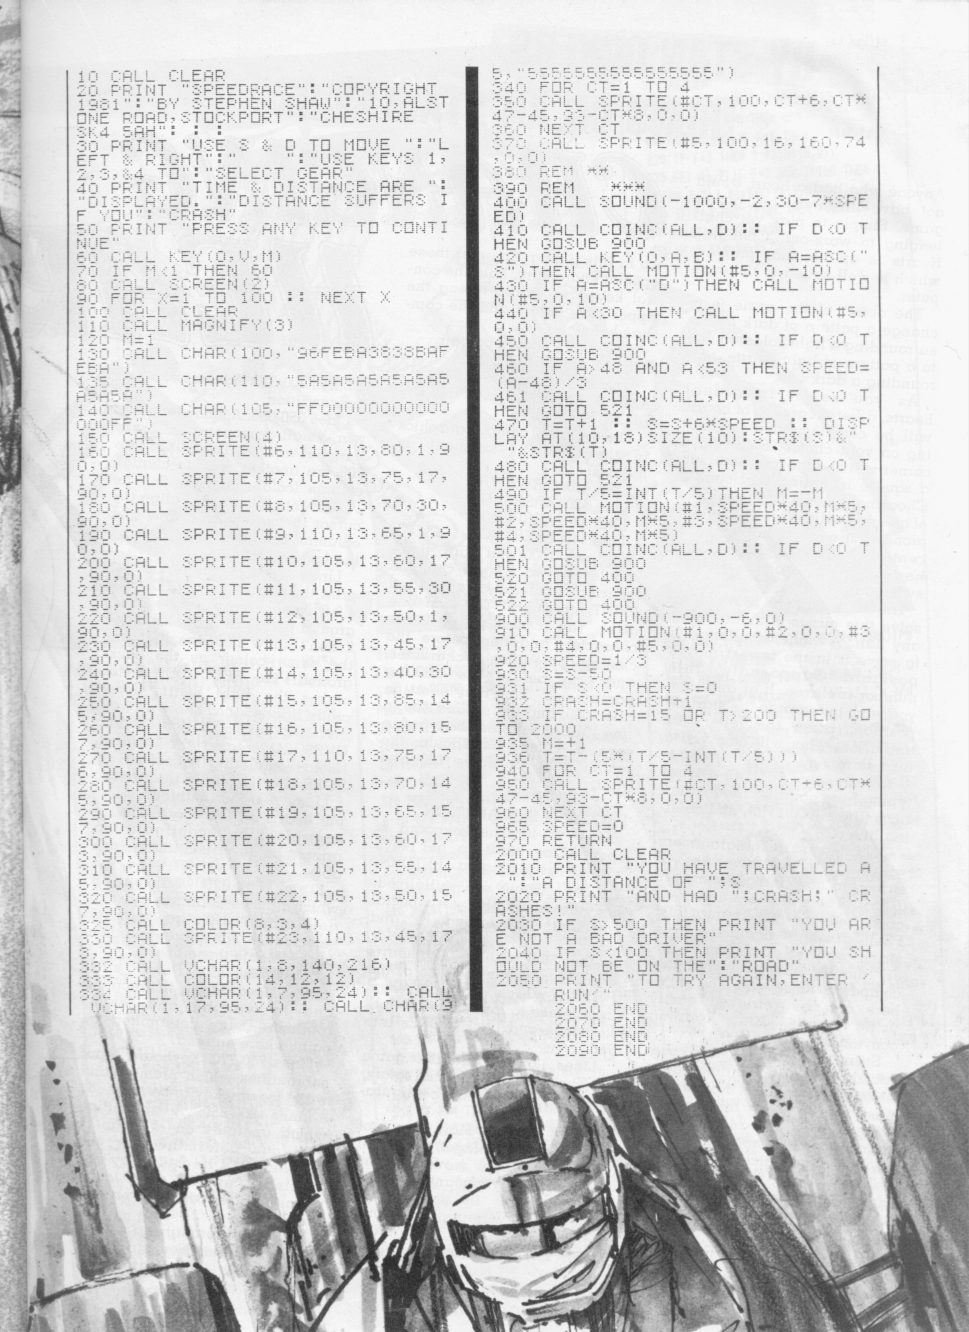 10 CALL CLEAR
20 PRINT "SPEEDRACE":"COPYRIGHT
1981":"BY STEPHEN SHAW":"10,ALST
ONE ROAD,STOCKPORT":"CHESHIRE
SK4 5AH": : :
30 PRINT "USE S & D TO MOVE ":"L
EFT & RIGHT":"     ":"USE KEYS 1,
2,3,&4 TO":"SELECT GEAR"
40 PRINT "TIME & DISTANCE ARE ":
"DISPLAYED.":"DISTANCE SUFFERS I
F YOU":"CRASH"
50 PRINT "PRESS ANY KEY TO CONTI
NUE"
60 CALL KEY(0,V,M)
70 IF M<1 THEN 60
80 CALL SCREEN(2)
90 FOR X=1 TO 100 :: NEXT X
100 CALL CLEAR
110 CALL MAGNIFY(3)
120 M=1
130 CALL CHAR(100,"96FEBA3838BAF
EBA")
135 CALL CHAR(110,"5A5A5A5A5A5A5
A5A5A")
140 CALL CHAR(105,"FF00000000000
000FF")
150 CALL SCREEN(4)
160 CALL SPRITE(#6,110,13,80,1,9
0,0)
170 CALL SPRITE(#7,105,13,75,17,
90,0)
180 CALL SPRITE(#8,105,13,70,30,
90,0)
190 CALL SPRITE(#9,110,13,65,1,9
0,0)
200 CALL SPRITE(#10,105,13,60,17
,90,0)
210 CALL SPRITE(#11,105,13,55,30
,90,0)
220 CALL SPRITE(#12,105,13,50,1,
90,0)
230 CALL SPRITE(#13,105,13,45,17
,90,0)
240 CALL SPRITE(#14,105,13,40,30
,90,0)
250 CALL SPRITE(#15,105,13,85,14
5,90,0)
260 CALL SPRITE(#16,105,13,80,15
7,90,0)
270 CALL SPRITE(#17,110,13,75,17
6,90,0)
280 CALL SPRITE(#18,105,13,70,14
5,90,0)
290 CALL SPRITE(#19,105,13,65,15
7,90,0)
300 CALL SPRITE(#20,105,13,60,17
3,90,0)
310 CALL SPRITE(#21,105,13,55,14
5,90,0)
320 CALL SPRITE(#22,105,13,50,15
7,90,0)
325 CALL COLOR(8,3,4)
330 CALL SPRITE(#23,110,13,45,17
3,90,0)
332 CALL VCHAR(1,8,140,216)
333 CALL COLOR(14,12,12)
334 CALL VCHAR(1,7,95,24):: CALL
VCHAR(1,17,95,24):: CALL CHAR(9
5,"5555555555555555")
340 FOR CT=1 TO 4
350 CALL SPRITE(#CT,100,CT+6,CT*
47-45,93-CT*8,0,0)
360 NEXT CT
370 CALL SPRITE(#5,100,16,160,74
,0,0)
380 REM **
390 REM   ***
400 CALL SOUND(-1000,-2,30-7*SPE
ED)
410 CALL COINC(ALL,D):: IF D<0 T
HEN GOSUB 900
420 CALL KEY(0,A,B):: IF A=ASC("
S")THEN CALL MOTION(#5,0,-10)
430 IF A=ASC("D")THEN CALL MOTIO
N(#5,0,10)
440 IF A<30 THEN CALL MOTION(#5,
0,0)
450 CALL COINC(ALL,D):: IF D<0 T
HEN GOSUB 900
460 IF A>48 AND A<53 THEN SPEED=
(A-48)/3
461 CALL COINC(ALL,D):: IF D<0 T
HEN GOTO 521
470 T=T+1 :: S=S+6*SPEED :: DISP
LAY AT(10,18)SIZE(10):STR$(S)&"
"&STR$(T)
480 CALL COINC(ALL,D):: IF D<0 T
HEN GOTO 521
490 IF T/5=INT(T/5)THEN M=-M
500 CALL MOTION(#1,SPEED*40,M*5,
#2,SPEED*40,M*5,#3,SPEED*40,M*5,
#4,SPEED*40,M*5)
501 CALL COINC(ALL,D):: IF D<0 T
HEN GOSUB 900
520 GOTO 400
521 GOSUB 900
522 GOTO 400
900 CALL SOUND(-900,-6,0)
910 CALL MOTION(#1,0,0,#2,0,0,#3
,0,0,#4,0,0,#5,0,0)
920 SPEED=1/3
930 S=S-50
931 IF S<0 THEN S=0
932 CRASH=CRASH+1
933 IF CRASH=15 OR T>200 THEN GO
TO 2000
935 M=+1
936 T=T-(5*(T/5-INT(T/5)))
940 FOR CT=1 TO 4
950 CALL SPRITE(#CT,100,CT+6,CT*
47-45,93-CT*8,0,0)
960 NEXT CT
965 SPEED=0
970 RETURN
2000 CALL CLEAR
2010 PRINT "YOU HAVE TRAVELLED A
":"A DISTANCE OF ";S
2020 PRINT "AND HAD ";CRASH;" CR
ASHES!"
2030 IF S>500 THEN PRINT "YOU AR
E NOT A BAD DRIVER"
2040 IF S<100 THEN PRINT "YOU SH
OULD NOT BE ON THE":"ROAD"
2050 PRINT "TO TRY AGAIN,ENTER '
RUN'"
2060 END
2070 END
2080 END
2090 END